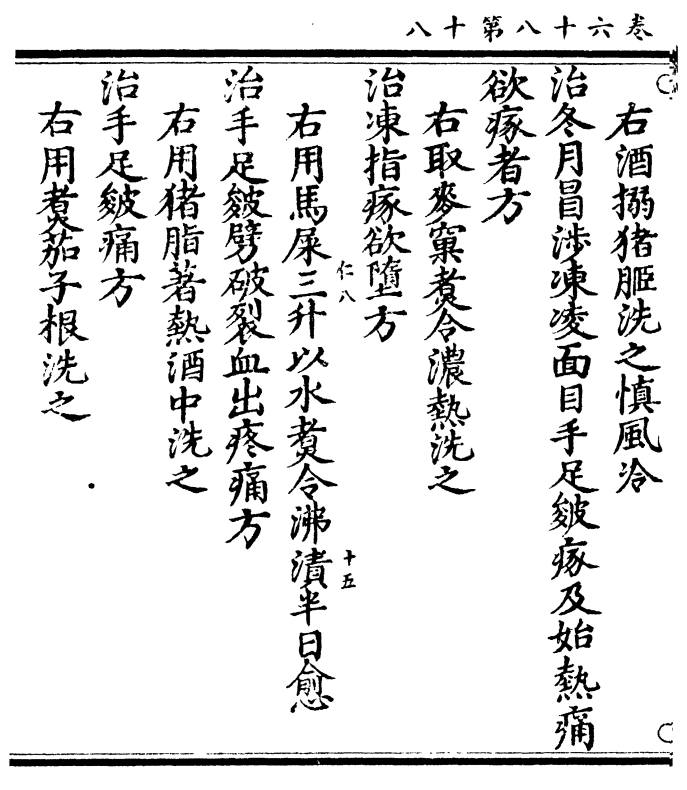 卷六十八第十八
右酒搦猪胵洗之慎風冷
治冬月冒涉凍凌面目手足皴瘃及始熱痛
欲瘃者方
右取麥窠煮令濃熱洗之
治凍指瘃欲墮方
右用馬屎三升以水煮令沸漬半日愈
仁八
十五
治手足皴劈破裂血出疼痛方
右用猪脂著熱酒中洗之
治手足皴痛方
右用煮茄子根洗之